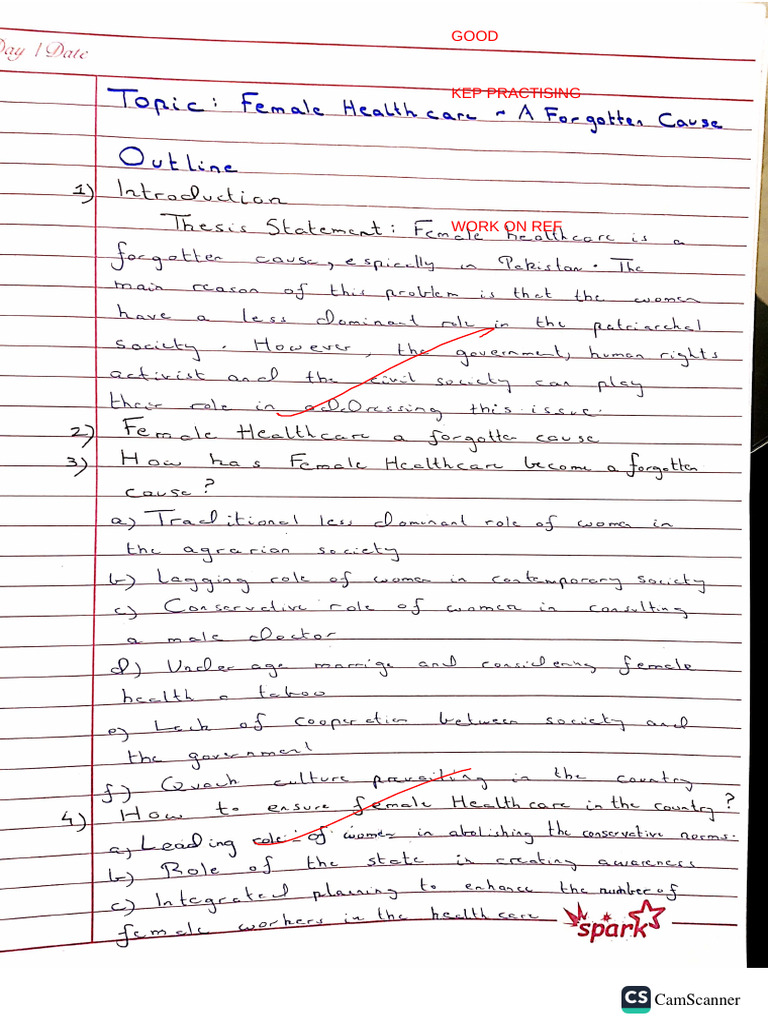 GOOD
Day / Date
KEP PRACTISING
Topic: Female Healthcare ~ A Forgotten Cause
Outline
1) Introduction
WORK ON REF
Thesis Statement: Female healthcare is a
forgotten cause, espically in Pakistan. The
main reason of this problem is that the women
have a less dominant role in the patriarchal
society. However, the government, human rights
activist and the civil society can play
their role in addressing this issue.
2) Female Healthcare a forgotten cause
3) How has Female Healthcare become a forgotten
cause?
a) Traditional less dominant role of woma in
the agrarian society
b) Lagging role of women in contemporary society
c) Conservative role of women in consulting
a male doctor
d) Under age marrige and considering female
health a taboo
e) Lack of cooperation between society and
the government
f) Quack culture prevailing in the country
4) How to ensure female Healthcare in the country?
a) Leading role of women in abolishing the conservative norms.
b) Role of the state in creating awareness
c) Integrated planing to enhance the number of
female workers in the healthcare
spark
CS CamScanner